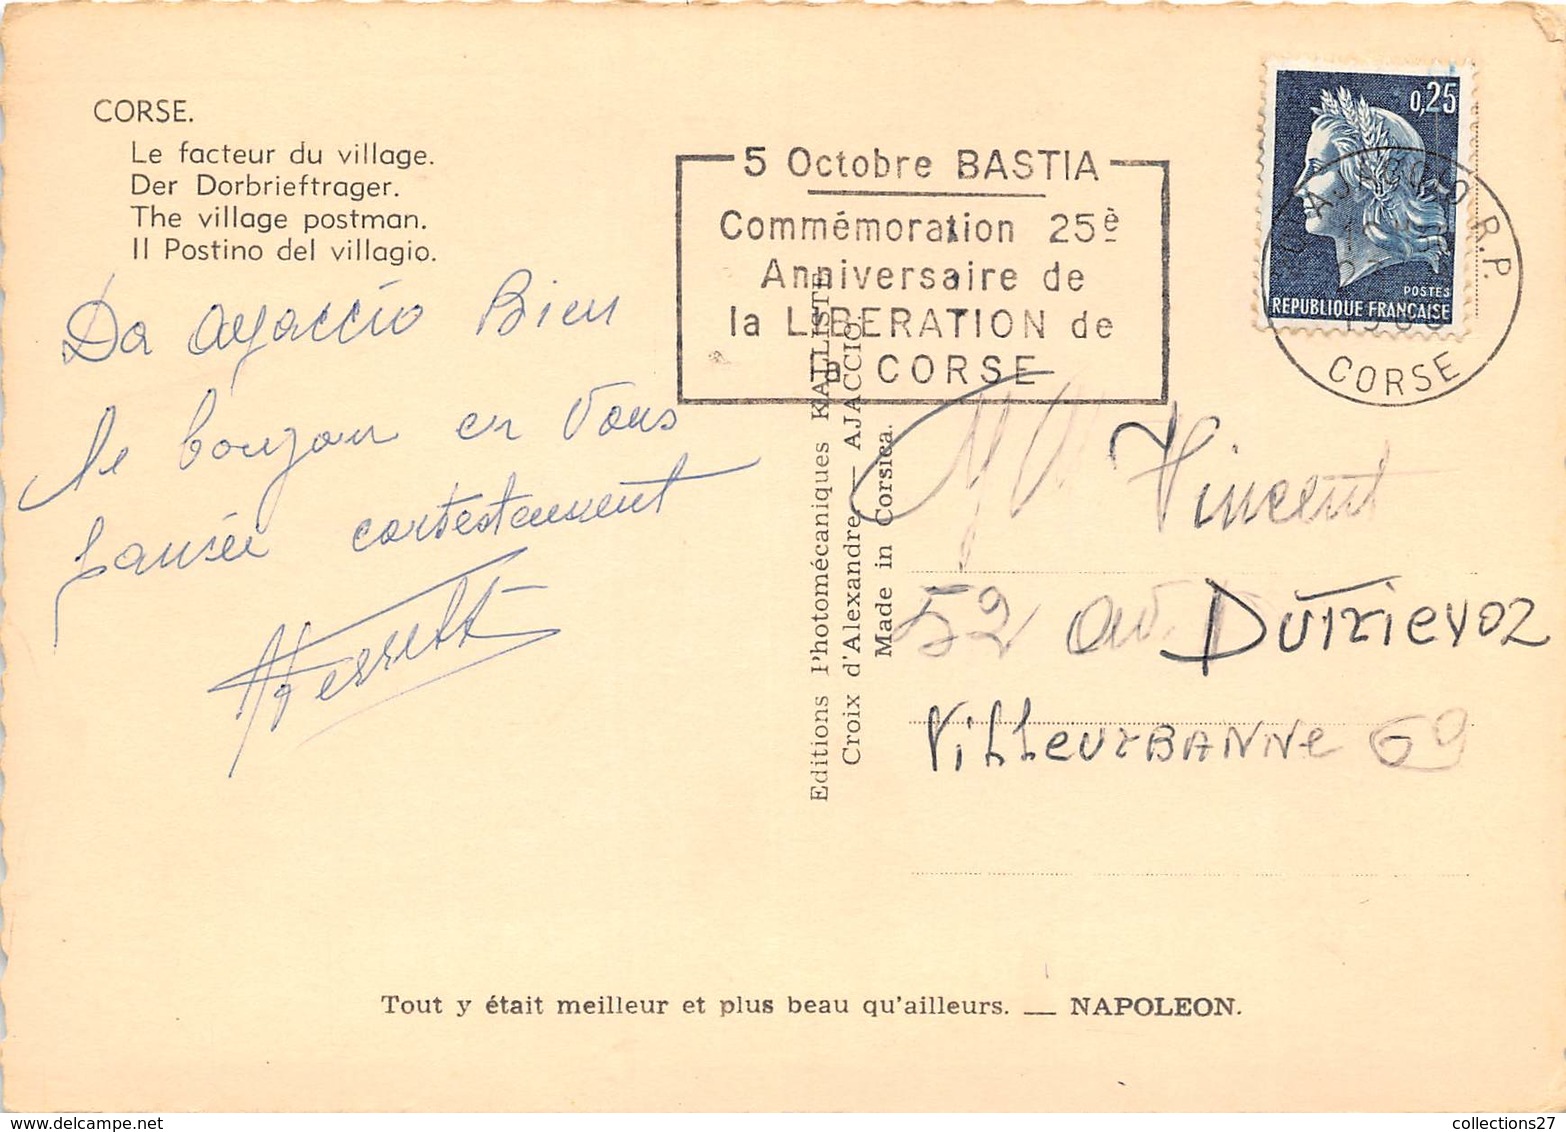 CORSE.
Le facteur du village.
Der Dorbrieftrager.
The village postman.
Il Postino del villagio.
Da Ajaccio Bien
le bonjour en Vous
5 Octobre BASTIA
Commémoration 25è
Anniversaire de
la LIBERATION de
la CORSE
0,25
POSTES
REPUBLIQUE FRANÇAISE
AJACCIO R.P.
CORSE
Editions Photomécaniques KALLISTE
Croix d'Alexandre — AJACCIO.
Made in Corsica.
Vincent
52 av. Dutrievoz
Villeurbanne 69
Tout y était meilleur et plus beau qu'ailleurs. — NAPOLEON.
collections27